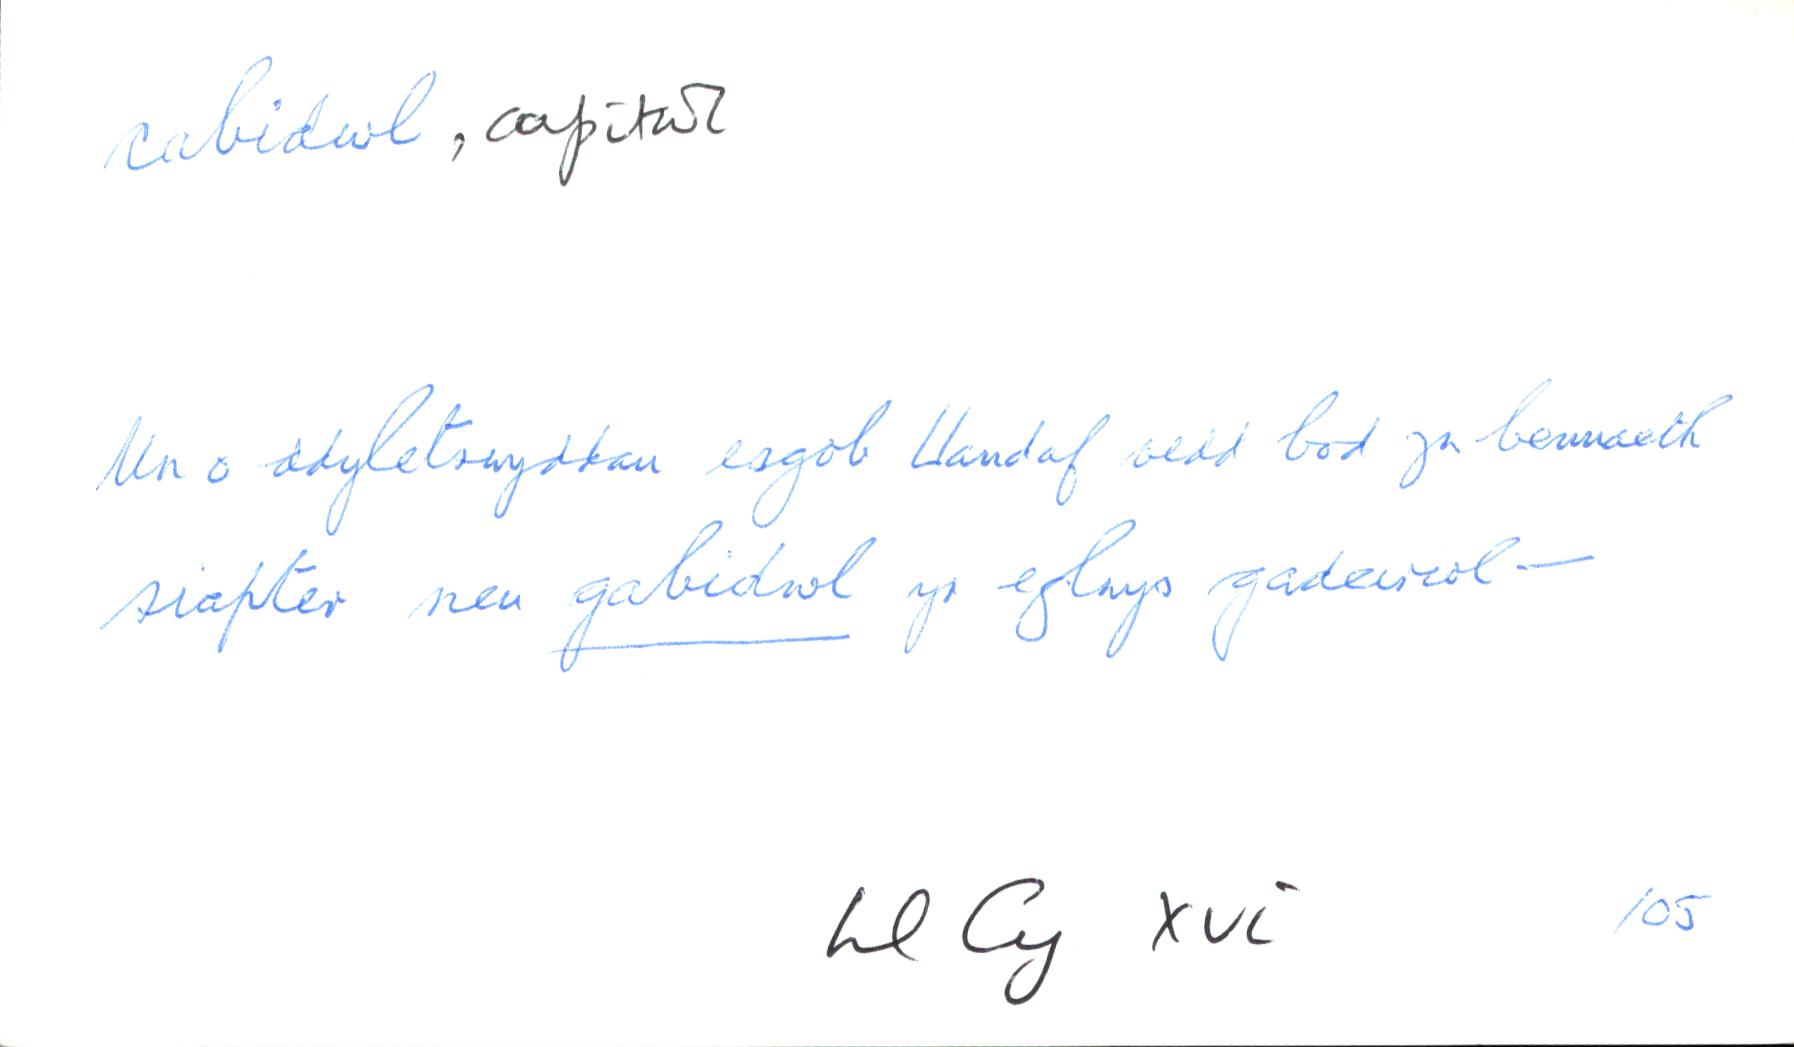 cabidwl, capitwl
Un o ddyletswyddau esgob Llandaf oedd bod yn bennaeth
siapter neu gabidwl yr eglwys gadeiriol —
Ll Cy XVI /105